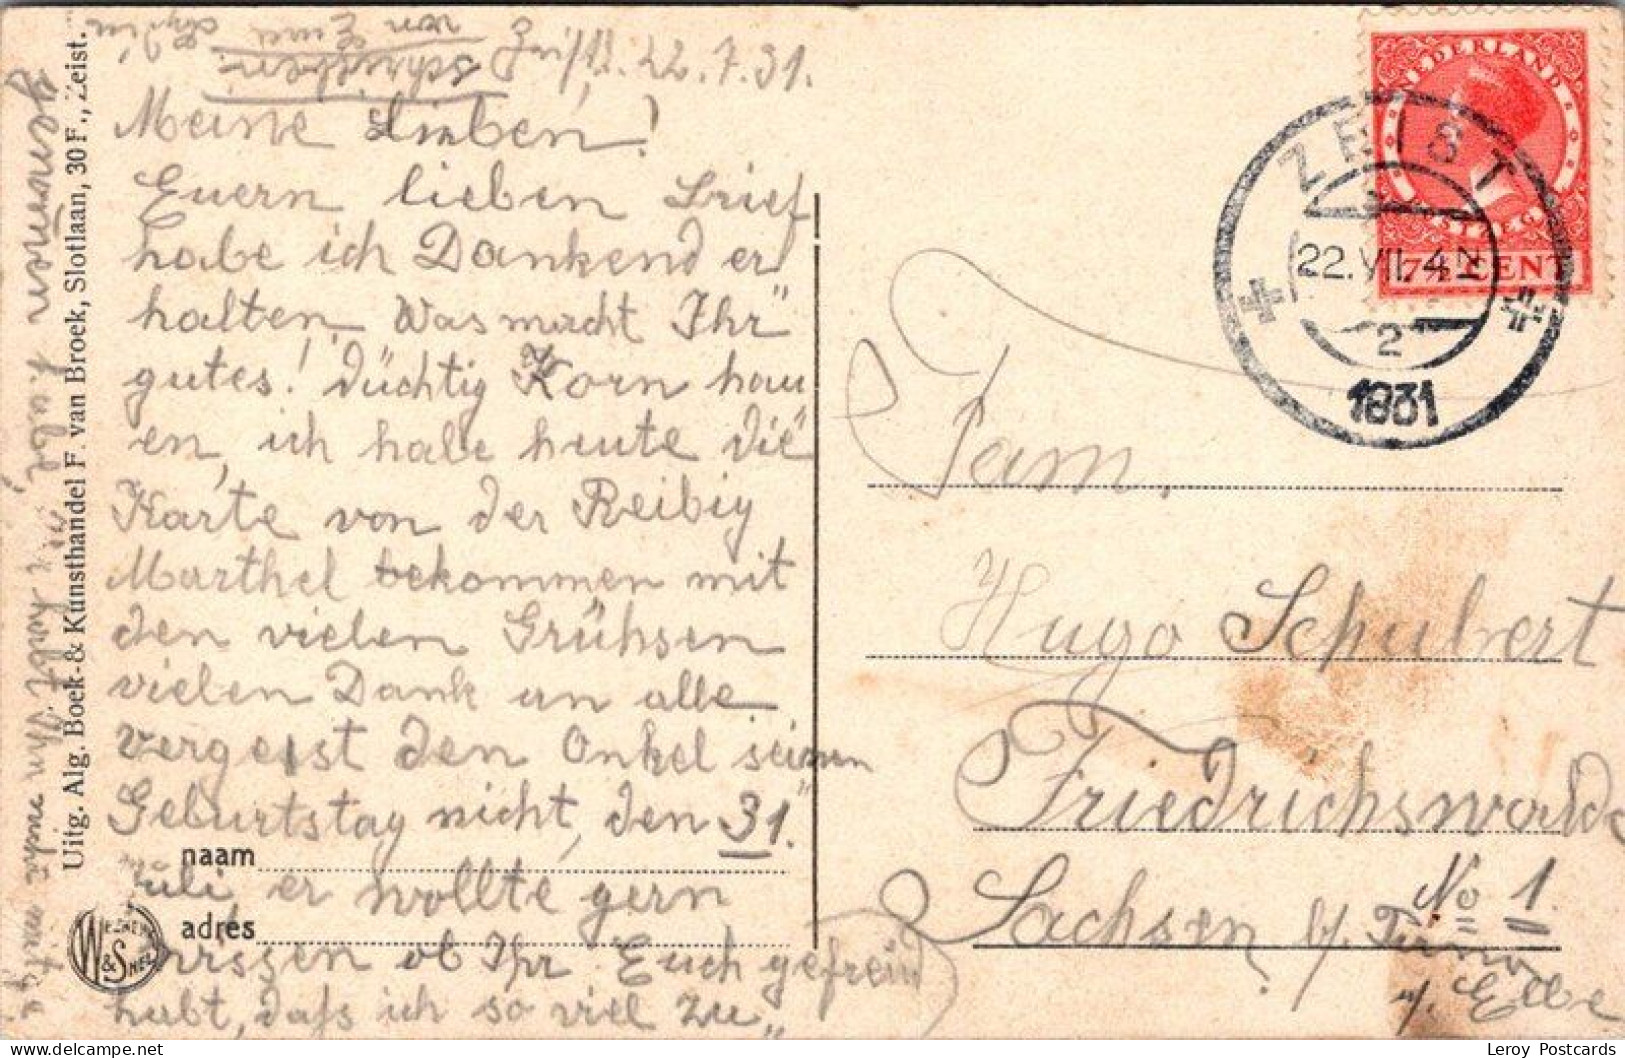 Zeist, 22.7.31.
Meine Lieben!
Euern lieben Brief
habe ich Dankend er
halten, Was macht Ihr
gutes! düchtig Korn hau
en, ich habe heute die
Karte von der Reibig
Marthel bekommen mit
den vielen Grühsen
vielen Dank an alle
vergeist den Onkel seinen
Geburtstag nicht, den 31.
Juli er wollte gern
wissen ob Ihr Euch gefreut
habt, dass ich so viel zu„
genommen habe,
habt Ihn nicht mit ge
schrieben
von
naam
adrés
Uitg. Alg. Boek- & Kunsthandel F. van Broek, Slotlaan, 30 F., Zeist.
W & S
NEDERLAND
7½ CENT
ZEIST
22.VII.4N
2
1931
Fam.
Hugo Schubert
Friedrichswalde
No 1.
Sachsen b/.
a/. Elbe
Leroy Postcards